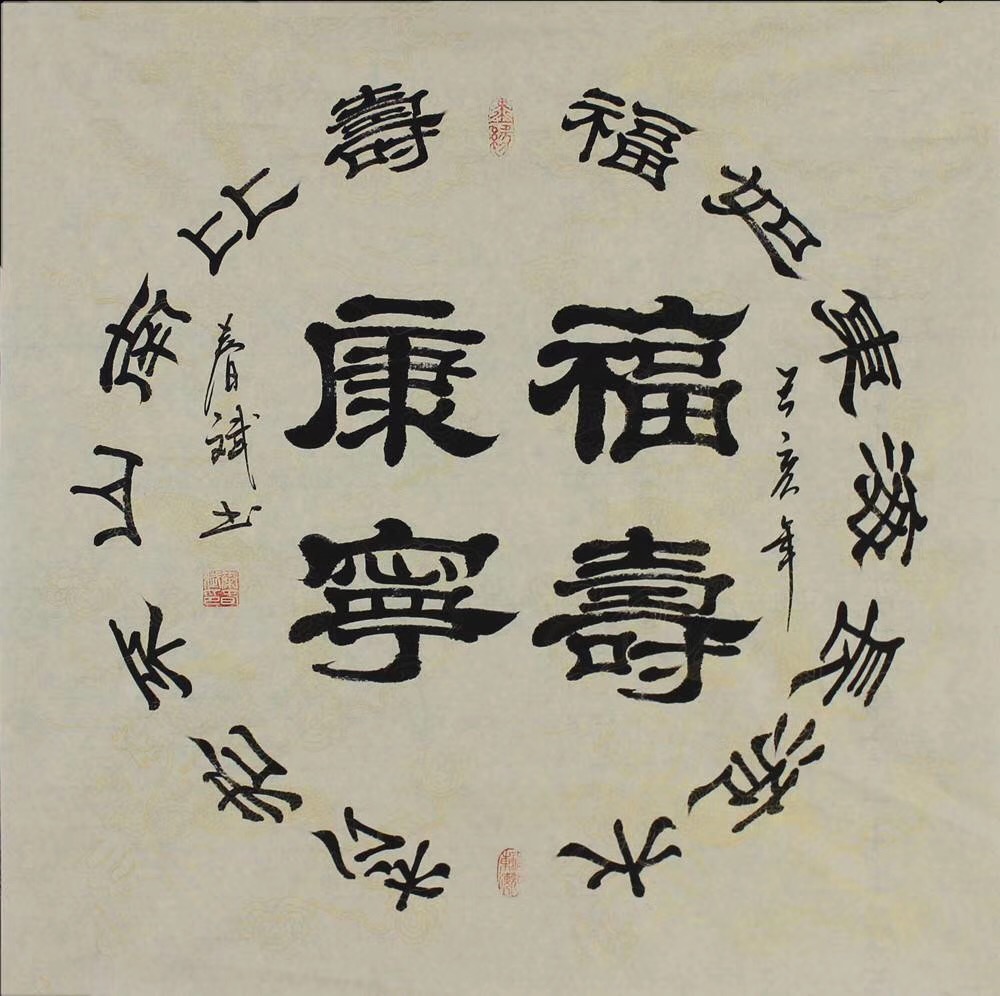 福壽
康寧
福如東海長流水
壽比南山不老松
己亥年
春斌书